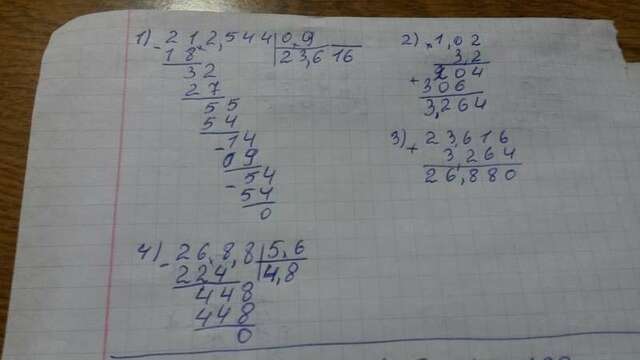 1) - 21 2,5 4 4 | 0,9
18 | 23,616
32
27
55
54
- 14
09
- 54
54
0
2) × 1,02
3,2
204
+ 306
3,264
3) + 23,616
3,264
26,880
4) - 26,8,8 | 5,6
224 | 4,8
448
448
0